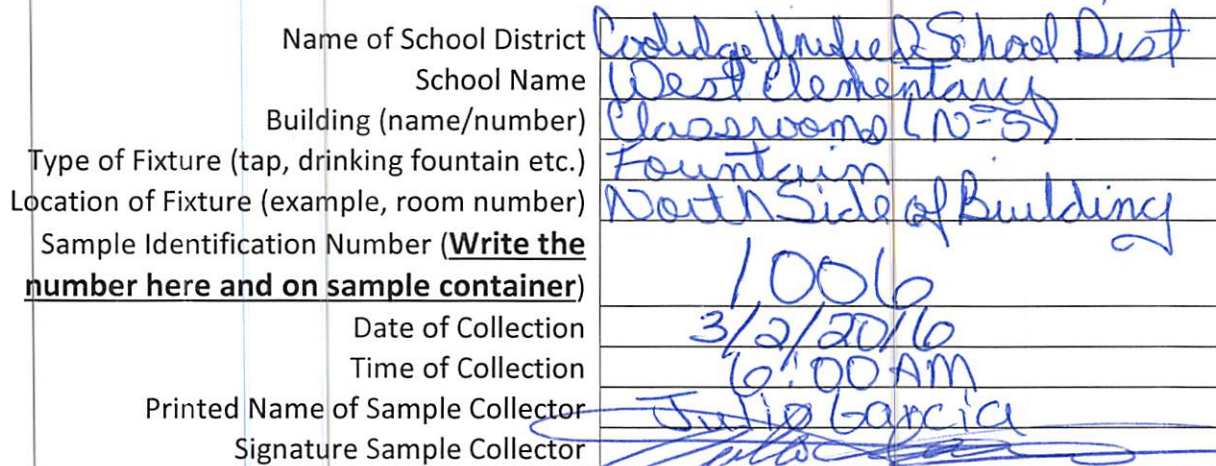 Name of School District Coolidge Unified School Dist
School Name West Elementary
Building (name/number) Classrooms (N-S)
Type of Fixture (tap, drinking fountain etc.) Fountain
Location of Fixture (example, room number) North Side of Building
Sample Identification Number (Write the
number here and on sample container) 1006
Date of Collection 3/2/2016
Time of Collection 6:00 AM
Printed Name of Sample Collector Julio Garcia
Signature Sample Collector